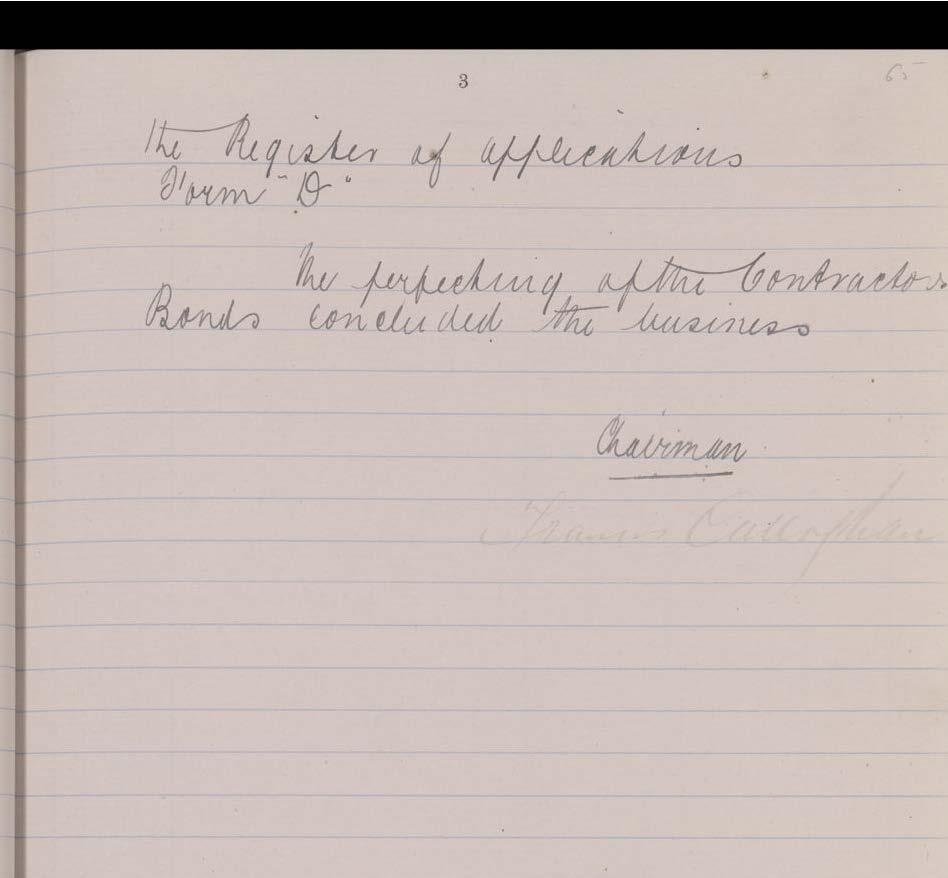 3
65
The Register of applications
Form "D"
The perfecting of the Contractors
Bonds concluded the business
Chairman
Francis Callaghan